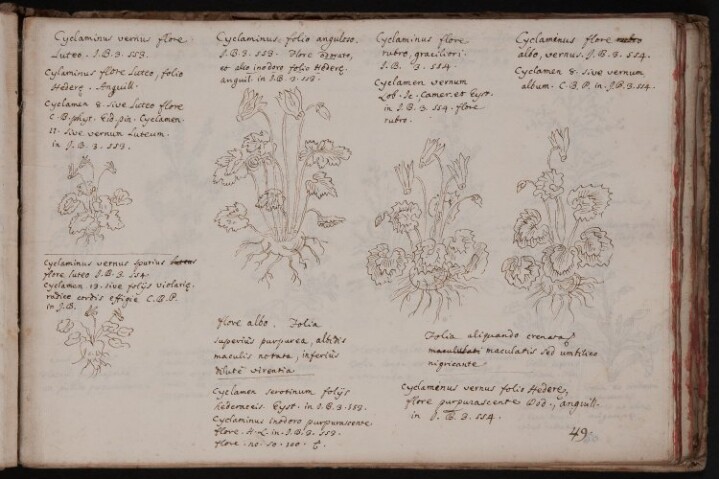 Cyclaminus vernus flore
Luteo. I.B.3. 553.
Cylaminus flore Luteo, folio
Hederę. Anguill.
Cyclamen 8. sive Luteo flore
C.B. phyt. Eid. pin. Cyclamen
11. sive vernum Luteum.
in J.B. 3. 553.
Cyclaminus vernus spurius
flore luteo I.B.3. 554.
Cyclamen 13. sive folijs violarię
radice cordis effigie C.B.P.
in J.B.
Cyclaminus folio anguloso.
I.B.3. 553. Flore odorato,
et alio inodoro folio Hederę.
anguil. in I.B.3.
flore albo. Folia
superius purpurea, albidis
maculis notata, inferius
dilute virentia
Cyclamen serotinum folijs
hederaceis Eyst. in I.B.3. 553.
Cyclaminus inodoro purpurascente
flore. in. J.B.3. 553.
flore. no. 50. 100.
Cyclaminus flore
rubro, graciliori.
I.B. 3. 554.
Cyclamen vernum
Lob. Ic. Camer. et Eyst.
in I.B. 3. 554. flore
rubro.
Cyclaminus flore rubro
albo, vernus. I.B.3. 554.
Cyclamen 8. sive vernum
album. C.B.P. in J.B. 3. 554.
Folia aliquando crenata
maculis sed umbilico
nigricante
Cyclamenus vernus folio Hederę,
flore purpurascente Dod., anguill.
in J.B. 3. 554.
49.